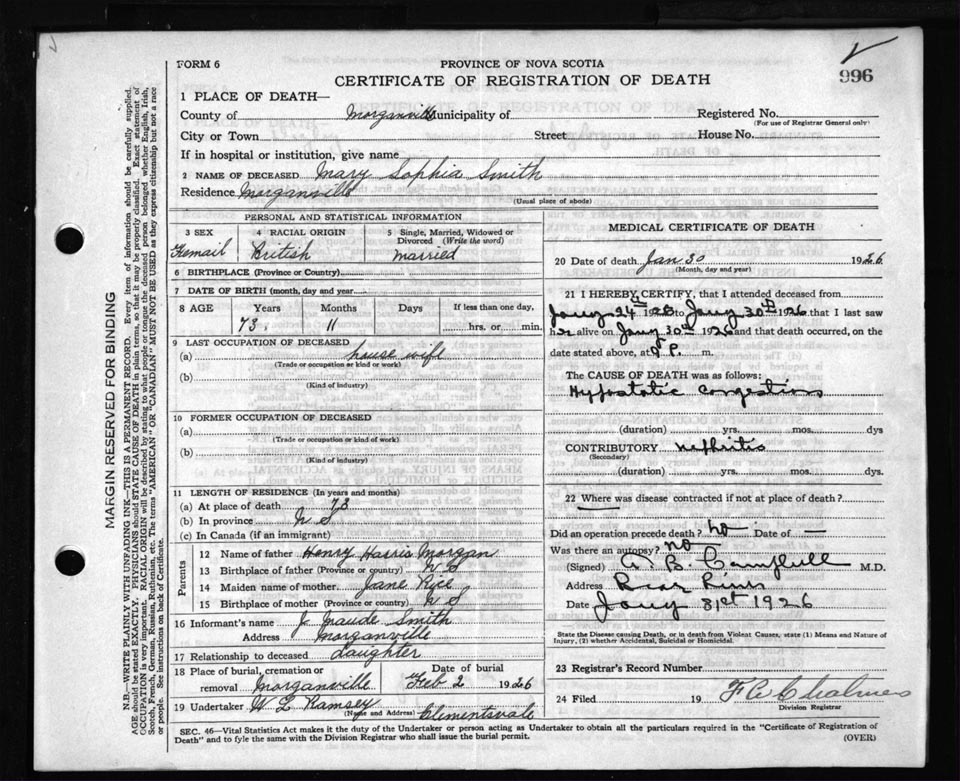 FORM 6
PROVINCE OF NOVA SCOTIA
CERTIFICATE OF REGISTRATION OF DEATH
996
1 PLACE OF DEATH—
County of Morganville Municipality of Registered No.
(For use of Registrar General only)
City or Town Street House No.
If in hospital or institution, give name
2 NAME OF DECEASED Mary Sophia Smith
Residence Morganville
(Usual place of abode)
MARGIN RESERVED FOR BINDING
N.B.—WRITE PLAINLY WITH UNFADING INK—THIS IS A PERMANENT RECORD. Every item of information should be carefully supplied.
AGE should be stated EXACTLY. PHYSICIANS should STATE CAUSE OF DEATH in plain terms, so that it may be properly classified. Exact statement of
OCCUPATION is very important. RACIAL ORIGIN will be described by stating to what people or tongue the deceased person belonged whether English, Irish,
Scotch, French, German, Russian, Ruthenian, etc. The terms "AMERICAN" OR "CANADIAN" MUST NOT BE USED as they express citizenship but not a race
or people. See instructions on back of Certificate.
PERSONAL AND STATISTICAL INFORMATION
3 SEX 4 RACIAL ORIGIN 5 Single, Married, Widowed or
Divorced (Write the word)
Femail British married
6 BIRTHPLACE (Province or Country)
7 DATE OF BIRTH (month, day and year)
8 AGE Years Months Days If less than one day,
73 11 hrs. or min.
9 LAST OCCUPATION OF DECEASED
(a) house wife
(Trade or occupation or kind or work)
(b)
(Kind of industry)
10 FORMER OCCUPATION OF DECEASED
(a)
(Trade or occupation or kind of work)
(b)
(Kind of industry)
11 LENGTH OF RESIDENCE (In years and months)
(a) At place of death 73
(b) In province N S
(c) In Canada (if an immigrant)
Parents
12 Name of father Henry Harris Morgan
13 Birthplace of father (Province or country) N S
14 Maiden name of mother Jane Rice
15 Birthplace of mother (Province or country) N S
16 Informant's name J. Maude Smith
Address Morganville
17 Relationship to deceased daughter
18 Place of burial, cremation or Date of burial
removal Morganville Feb 2 1926
19 Undertaker W L Ramsey Clementsvale
(Name and Address)
MEDICAL CERTIFICATE OF DEATH
20 Date of death Jan 30 1926
(Month, day and year)
21 I HEREBY CERTIFY, that I attended deceased from
Jany 24th 1926 to Jany 30th 1926 that I last saw
her alive on Jany 30th 1926 and that death occurred, on
date stated above, at P. m.
The CAUSE OF DEATH was as follows:
Hypostatic Congestion
(duration) yrs. mos. dys
CONTRIBUTORY nephritis
(Secondary)
(duration) yrs. mos. dys.
22 Where was disease contracted if not at place of death?
Did an operation precede death? no Date of —
Was there an autopsy? no
(Signed) A. B. Campbell M.D.
Address Bear River
Date Jany 31st 1926
State the Disease causing Death, or in death from Violent Causes, state (1) Means and Nature of
Injury, (2) whether Accidental, Suicidal or Homicidal.
23 Registrar's Record Number
24 Filed 19 Chalmers
Division Registrar
SEC. 46—Vital Statistics Act makes it the duty of the Undertaker or person acting as Undertaker to obtain all the particulars required in the "Certificate of Registration of
Death" and to fyle the same with the Division Registrar who shall issue the burial permit.
(OVER)